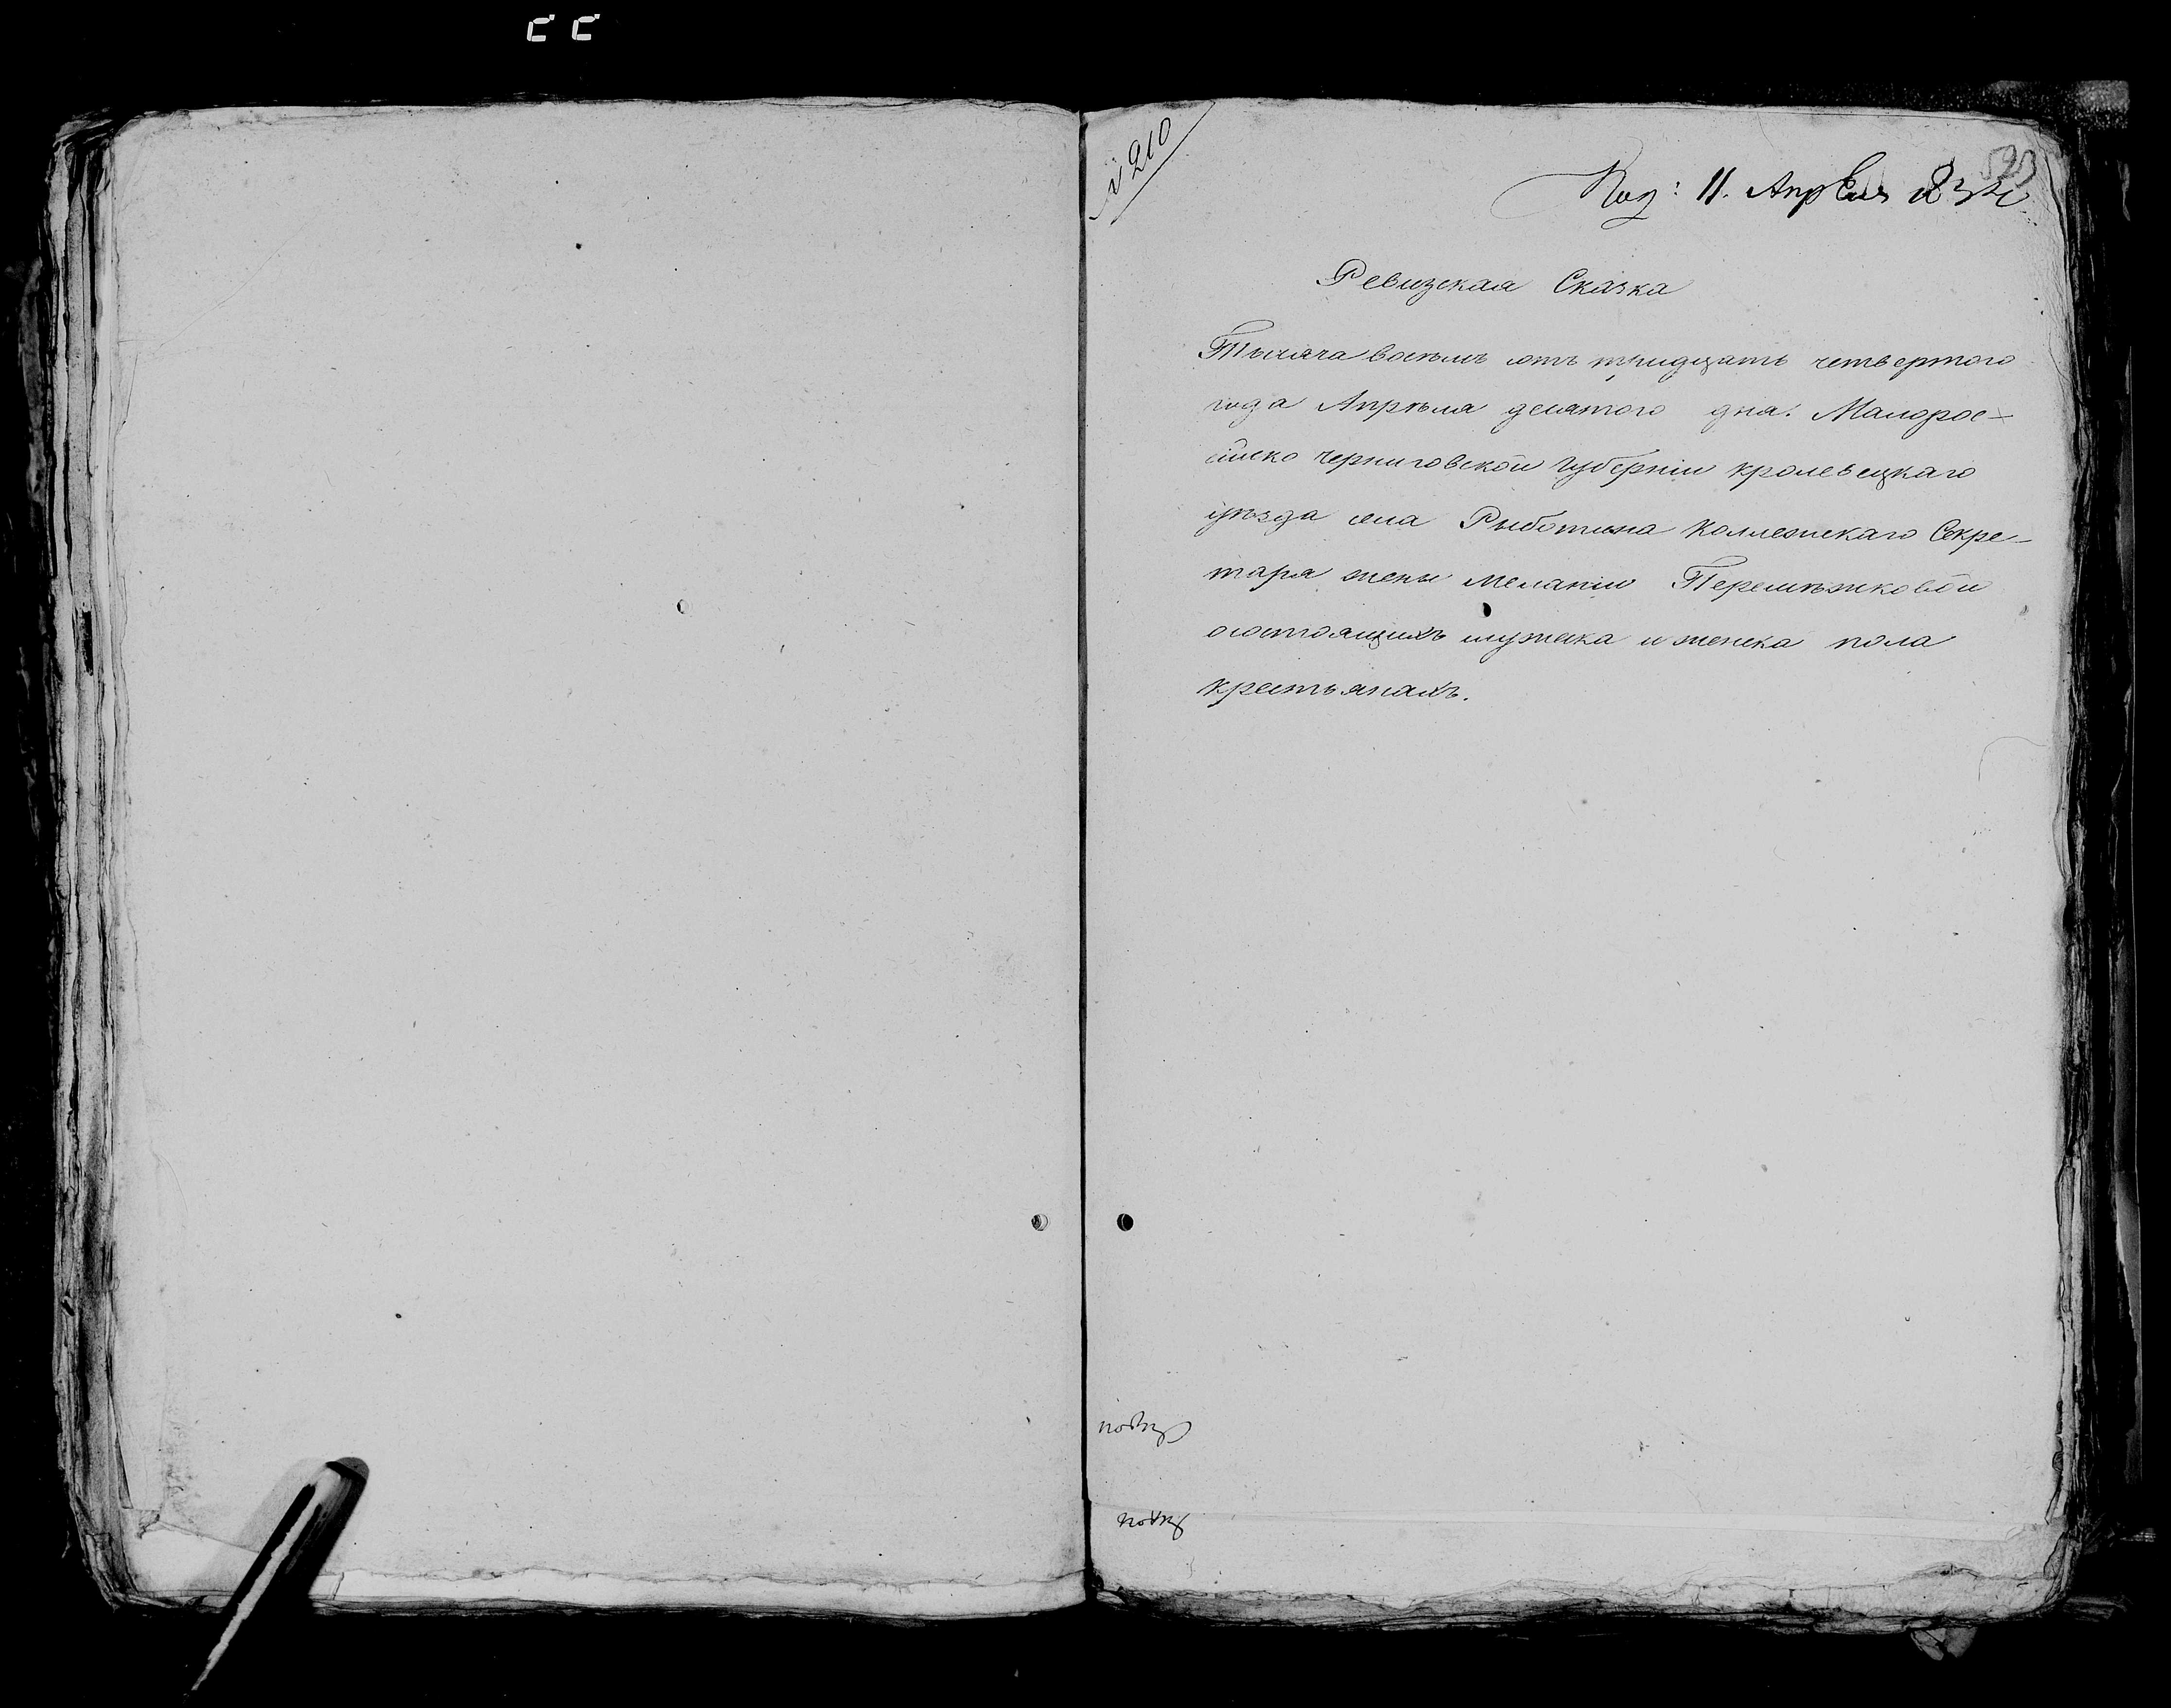 № 210
Под: 11. Апреля 1834
Ревизская Сказка
Тысяча восемь сотъ тридцать четвертого
года Апрѣля десятого дня. Малорос-
ійско Черниговской Губерніи Кролевецкаго
уѣзда села Рыботина Коллежскаго Секре-
таря жены Меланіи Перемѣжковой
осостоящихъ мужеска и женска пола
крестьянахъ.